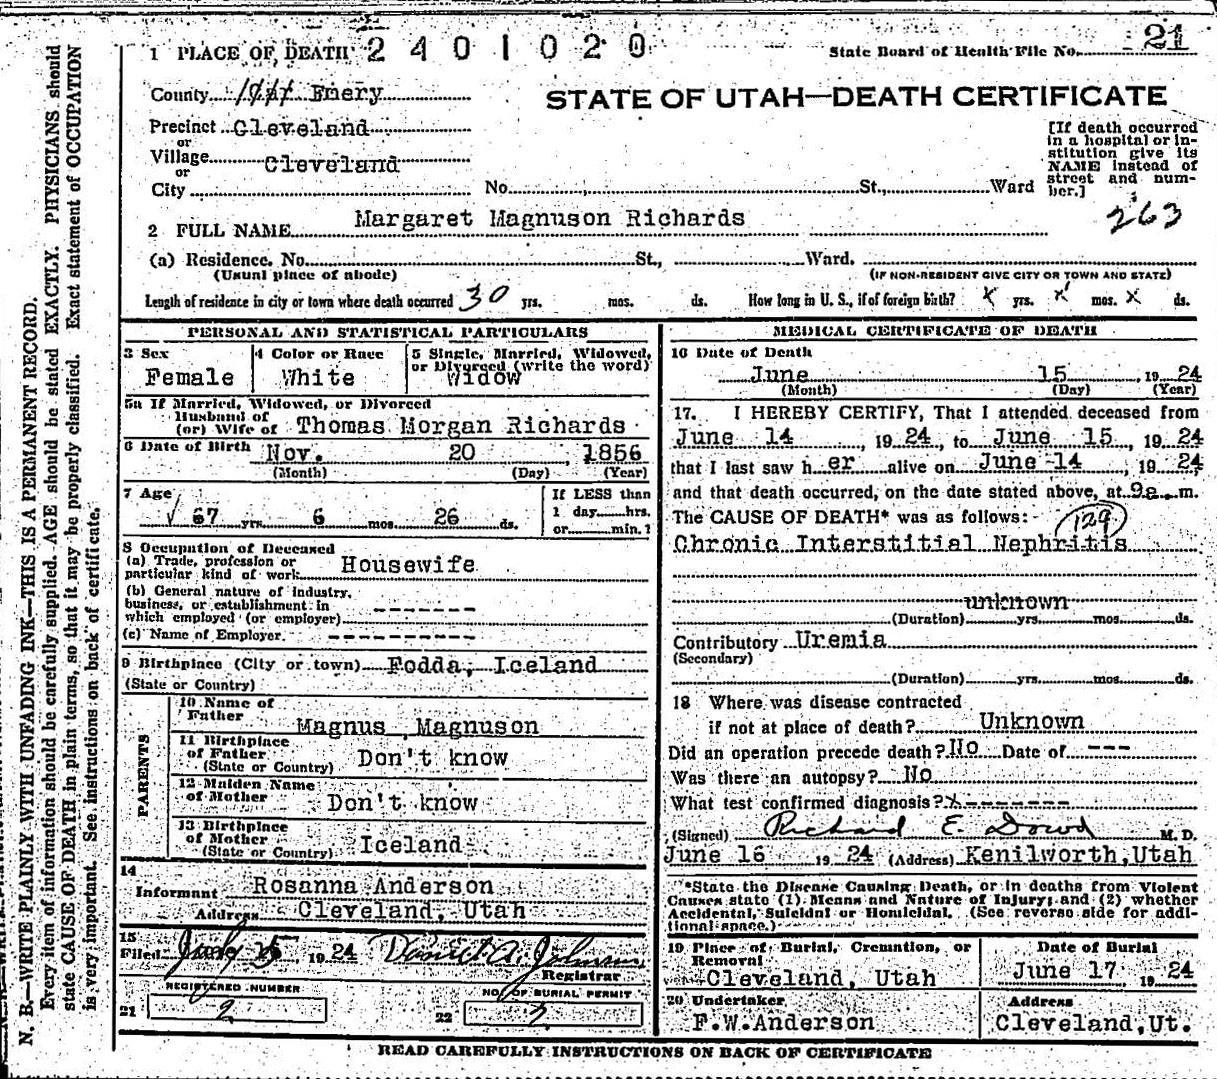 1 PLACE OF DEATH 2401020
State Board of Health File No. 21
County Emery
STATE OF UTAH—DEATH CERTIFICATE
Precinct Cleveland
or
Village Cleveland
or
City No. St., Ward
[If death occurred in a hospital or in-
stitution give its
NAME instead of
street and num-
ber.]
263
2 FULL NAME Margaret Magnuson Richards
(a) Residence. No. St., Ward.
(Usual place of abode) (IF NON-RESIDENT GIVE CITY OR TOWN AND STATE)
Length of residence in city or town where death occurred 30 yrs. mos. ds. How long in U. S., if of foreign birth? x yrs. x mos. x ds.
PERSONAL AND STATISTICAL PARTICULARS
3 Sex
Female
4 Color or Race
White
5 Single, Married, Widowed,
or Divorced (write the word)
Widow
5a If Married, Widowed, or Divorced
Husband of
(or) Wife of Thomas Morgan Richards
6 Date of Birth Nov. 20, 1856
(Month) (Day) (Year)
7 Age
67 yrs. 6 mos. 26 ds.
If LESS than
1 day hrs.
or min. ?
8 Occupation of Deceased
(a) Trade, profession or
particular kind of work Housewife
(b) General nature of industry,
business, or establishment in
which employed (or employer) ---------
(c) Name of Employer ----------
9 Birthplace (City or town) Fodda, Iceland
(State or Country)
PARENTS
10 Name of
Father Magnus Magnuson
11 Birthplace
of Father
(State or Country) Don't know
12 Maiden Name
of Mother Don't know
13 Birthplace
of Mother
(State or Country) Iceland
14
Informant Rosanna Anderson
Address Cleveland, Utah
15
Filed 15 1924 Daniel A. Johnson
Registrar
REGISTERED NUMBER
21 2
NO. OF BURIAL PERMIT
22 2
MEDICAL CERTIFICATE OF DEATH
16 Date of Death
June 15, 1924
(Month) (Day) (Year)
17. I HEREBY CERTIFY, That I attended deceased from
June 14, 1924, to June 15, 1924
that I last saw her alive on June 14, 1924,
and that death occurred, on the date stated above, at 9a m.
The CAUSE OF DEATH* was as follows: 129
Chronic Interstitial Nephritis
unknown
(Duration) yrs. mos. ds.
Contributory Uremia
(Secondary)
(Duration) yrs. mos. ds.
18 Where was disease contracted
if not at place of death? Unknown
Did an operation precede death? No Date of ---
Was there an autopsy? No
What test confirmed diagnosis? x-------
(Signed) Richard E. Dowd M. D.
June 16 1924 (Address) Kenilworth, Utah
*State the Disease Causing Death, or in deaths from Violent
Causes state (1) Means and Nature of Injury; and (2) whether
Accidental, Suicidal or Homicidal. (See reverse side for addi-
tional space.)
19 Place of Burial, Cremation, or
Removal
Cleveland, Utah
Date of Burial
June 17 1924
20 Undertaker
F.W.Anderson
Address
Cleveland, Ut.
READ CAREFULLY INSTRUCTIONS ON BACK OF CERTIFICATE
N. B.—WRITE PLAINLY WITH UNFADING INK—THIS IS A PERMANENT RECORD.
Every item of information should be carefully supplied. AGE should be stated EXACTLY. PHYSICIANS should
state CAUSE OF DEATH in plain terms, so that it may be properly classified. Exact statement of OCCUPATION
is very important. See instructions on back of certificate.